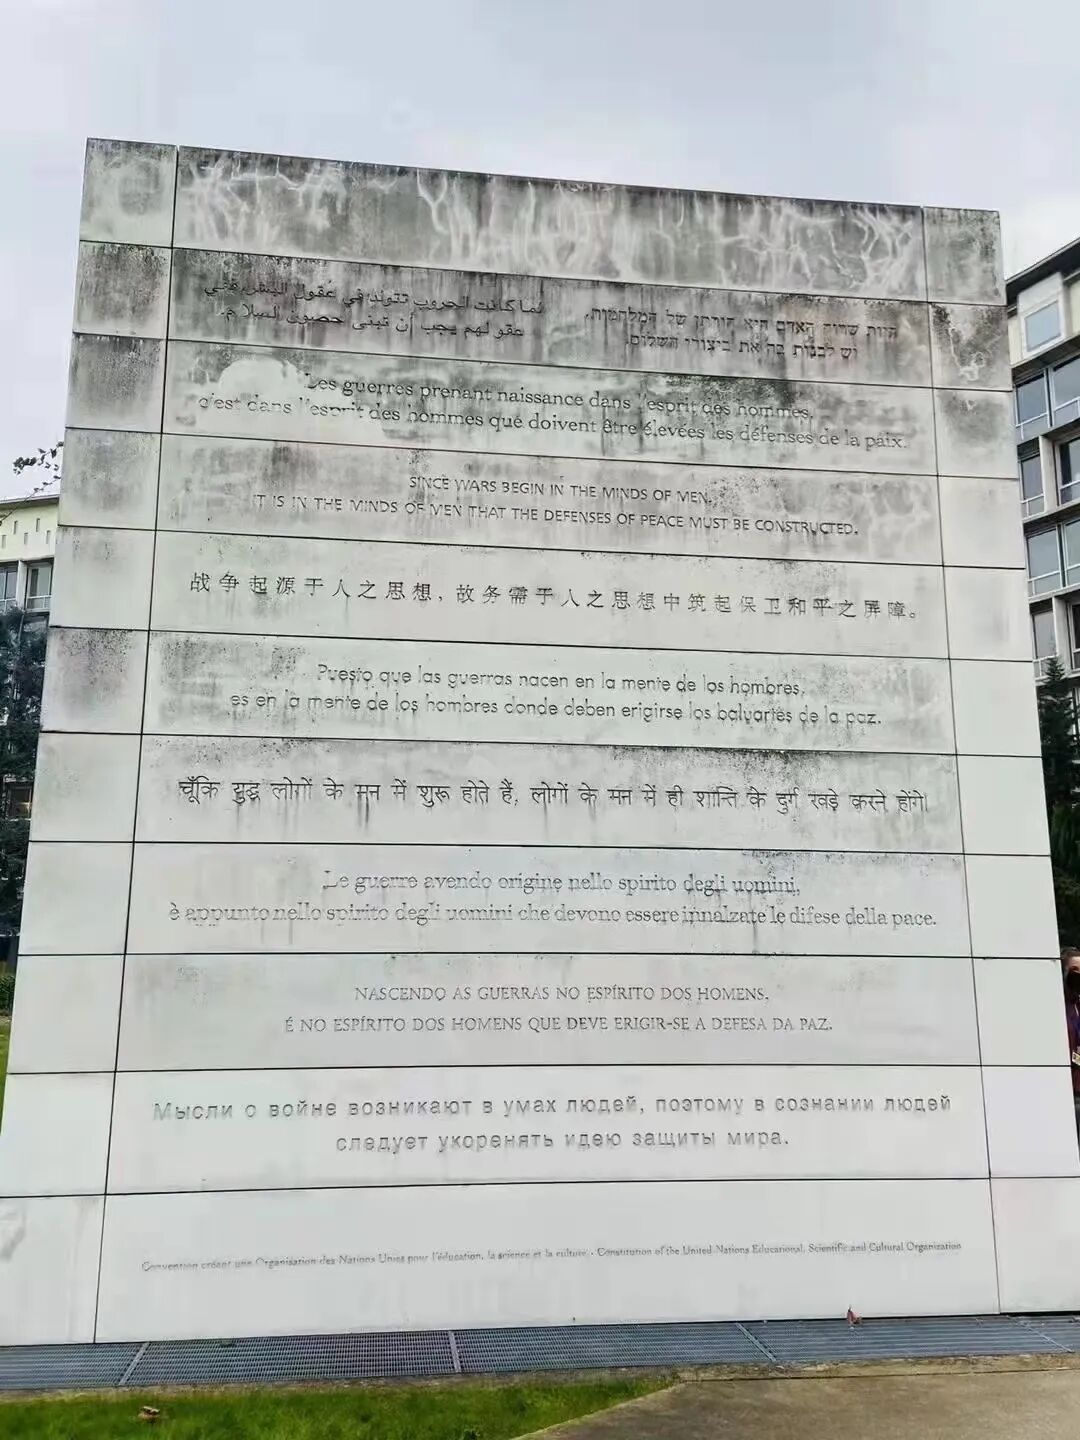 لما كانت الحروب تتولد في عقول البشر، ففي
عقولهم يجب أن تبنى حصون السلام.
היות שרוח האדם היא הורתן של המלחמות,
יש לבנות בה את ביצורי השלום.
Les guerres prenant naissance dans l'esprit des hommes,
c'est dans l'esprit des hommes que doivent être élevées les défenses de la paix.
SINCE WARS BEGIN IN THE MINDS OF MEN,
IT IS IN THE MINDS OF MEN THAT THE DEFENSES OF PEACE MUST BE CONSTRUCTED.
战争起源于人之思想，故务需于人之思想中筑起保卫和平之屏障。
Puesto que las guerras nacen en la mente de los hombres,
es en la mente de los hombres donde deben erigirse los baluartes de la paz.
चूँकि युद्ध लोगों के मन में शुरू होते हैं, लोगों के मन में ही शान्ति के दुर्ग खड़े करने होंगे।
Le guerre avendo origine nello spirito degli uomini,
è appunto nello spirito degli uomini che devono essere innalzate le difese della pace.
NASCENDO AS GUERRAS NO ESPÍRITO DOS HOMENS,
É NO ESPÍRITO DOS HOMENS QUE DEVE ERIGIR-SE A DEFESA DA PAZ.
Мысли о войне возникают в умах людей, поэтому в сознании людей
следует укоренять идею защиты мира.
Convention créant une Organisation des Nations Unies pour l'éducation, la science et la culture · Constitution of the United Nations Educational, Scientific and Cultural Organization